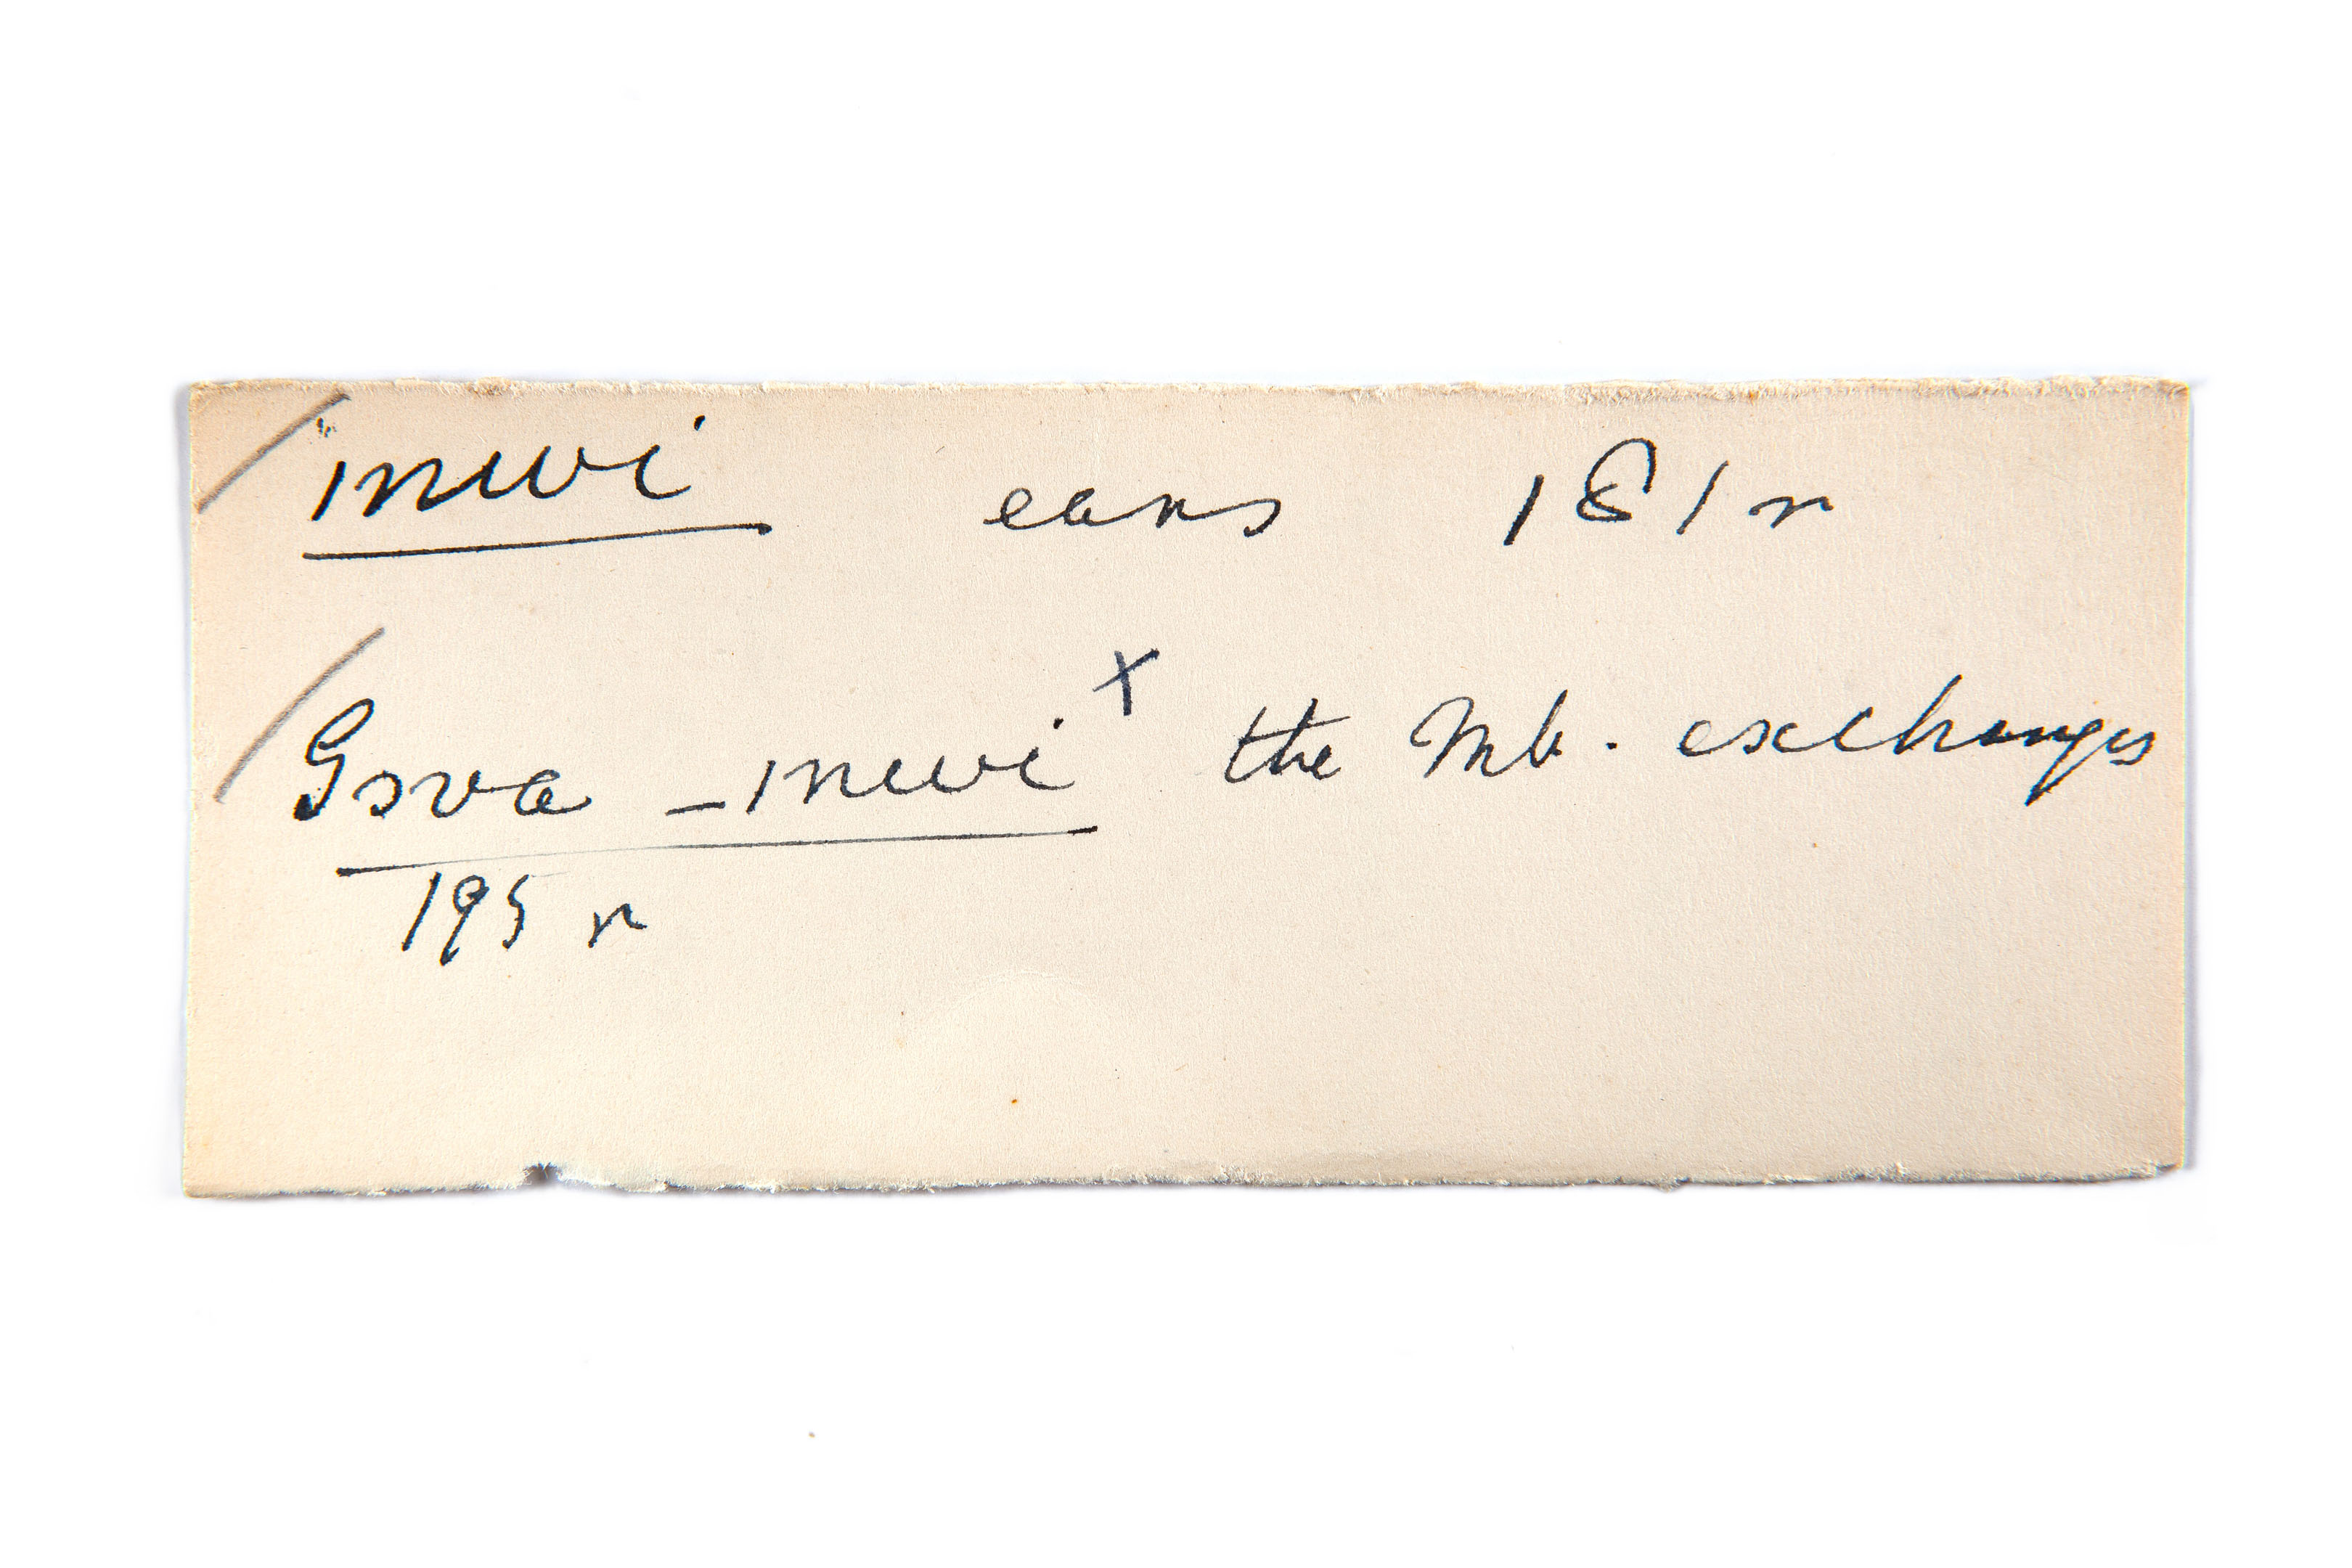 mwi ears 181 r
Gova - mwi x the Mb. exchanges
195 r